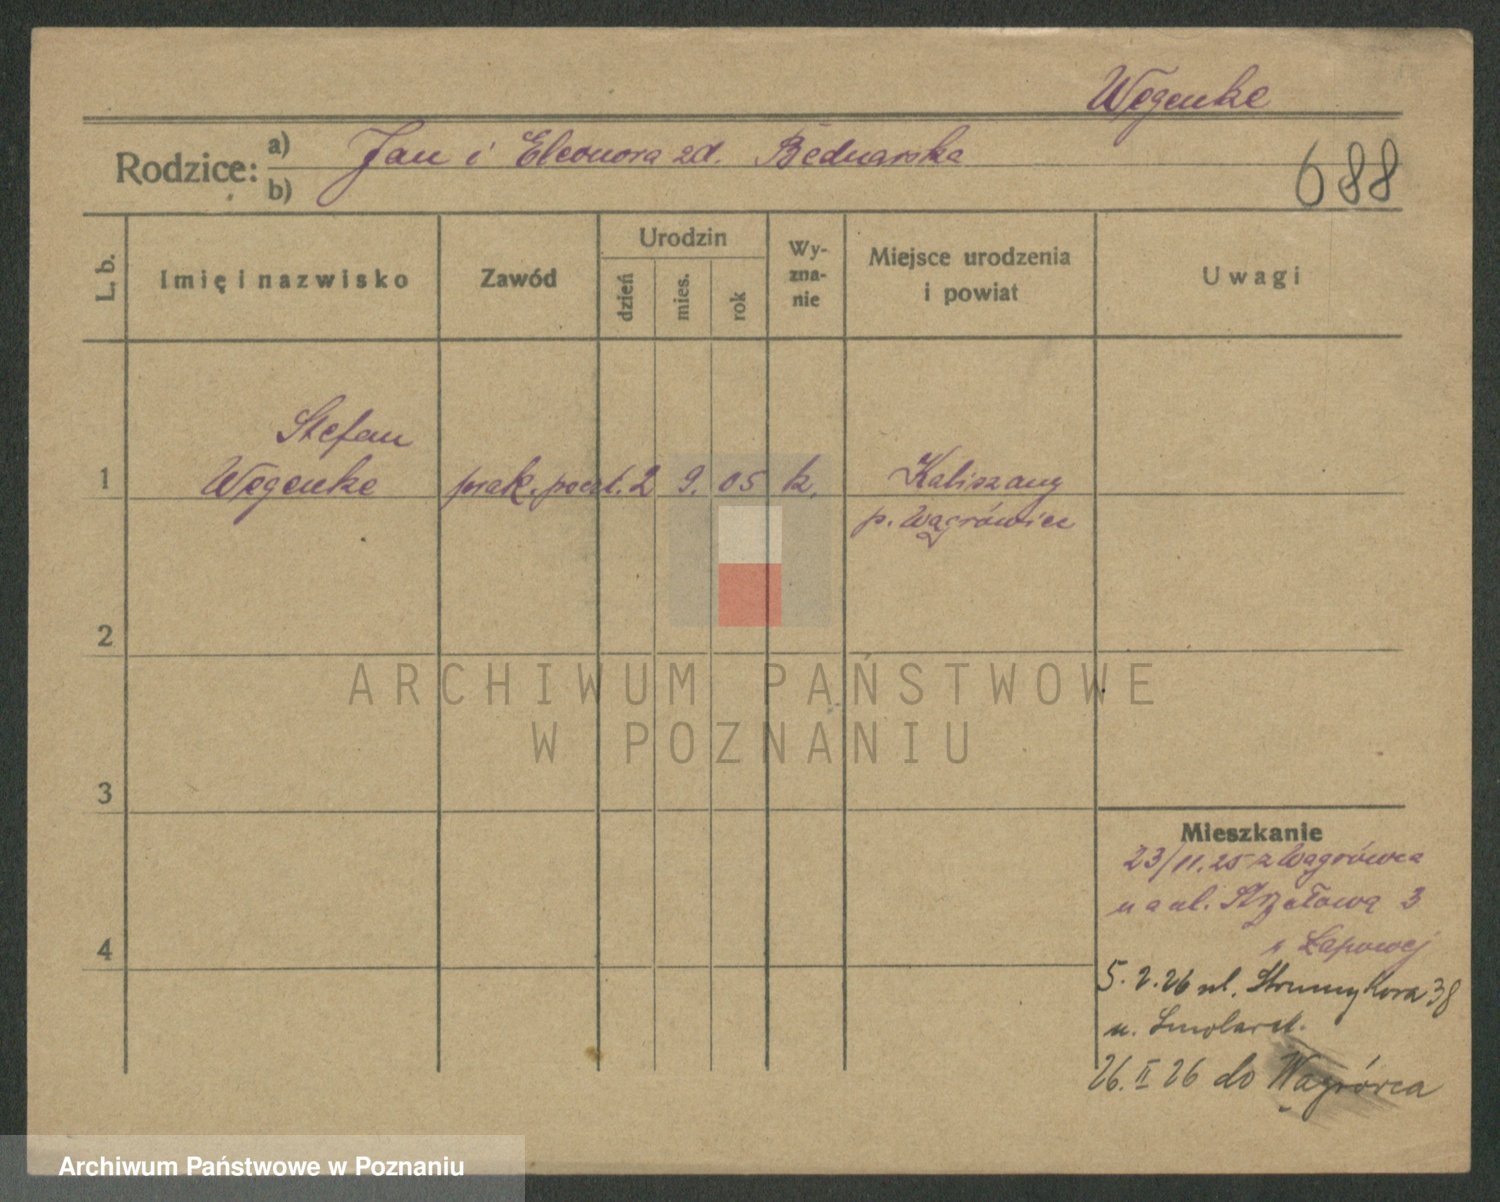 Węgenke
Rodzice: a) Jan i Eleonora zd. Bednarska
b)
688
L. b.
Imię i nazwisko
Zawód
Urodzin
dzień
mies.
rok
Wy-
zna-
nie
Miejsce urodzenia
i powiat
Uwagi
Stefan
1 Węgenke prak. poczt. 2 9. 05 k. Kaliszany
p. Wągrówiec
2
ARCHIWUM PAŃSTWOWE
W POZNANIU
3
Mieszkanie
23/11.25 z Wągrówca
na ul. Strzełową 3
Łapowej
4
5. 2. 26 ul. Strumykowa 38
u. Smolarek.
26. II 26 do Wągrówca
Archiwum Państwowe w Poznaniu